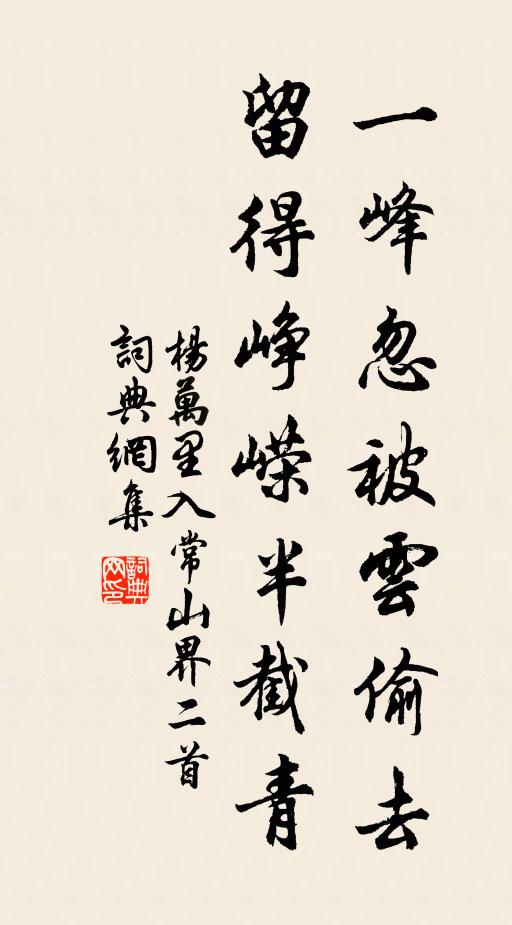 一峰忽被雲偷去
留得崢嶸半截青
楊萬里入常山界二首
詞典網集
詞典網印